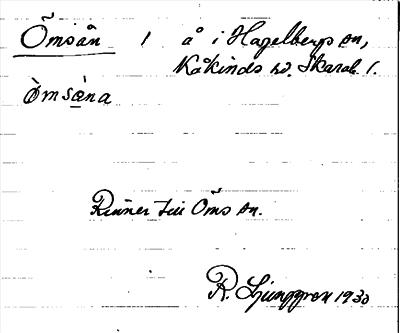 Ömsån 1 å i Hagelbergs sn,
Kåkinds hd. Skarab. l.
òmsǻna
Rinner till Öms sn.
R. Ljunggren 1930